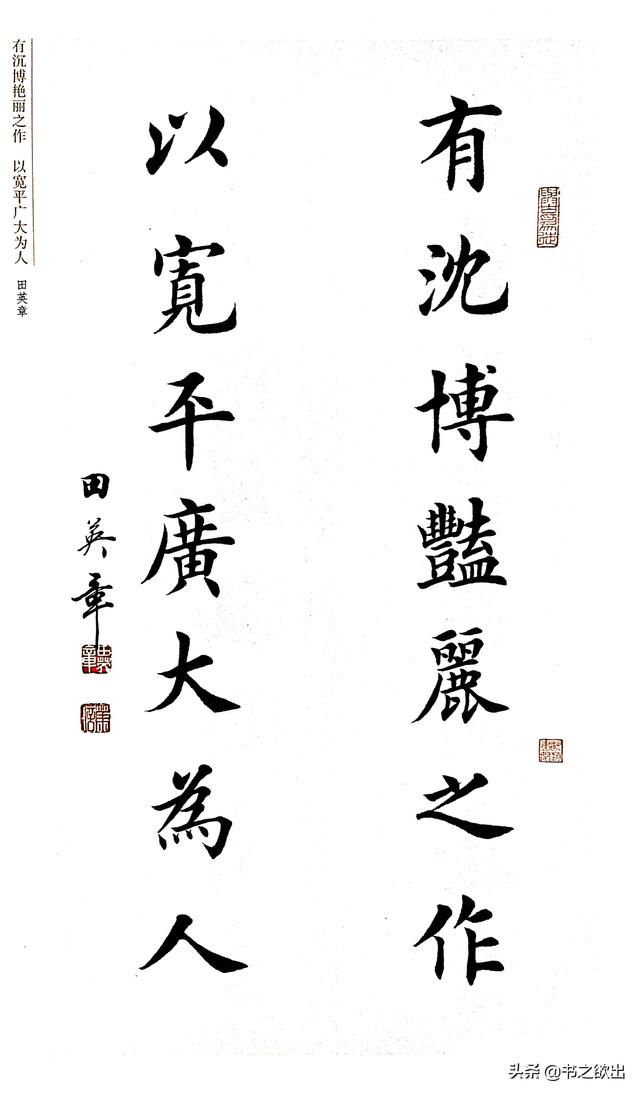 有沈博豔麗之作
以寬平廣大為人
田英章
有沉博艳丽之作 以宽平广大为人 田英章
头条 @书之欲出